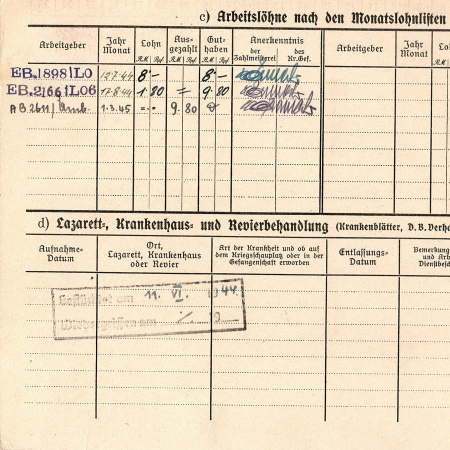 c) Arbeitslöhne nach den Monatslohnlisten
Arbeitgeber Jahr Monat Lohn RM Rpf Ausgezahlt RM Rpf Guthaben RM Rpf Anerkenntnis der Zahlmeisterei des Kr.Gef. Arbeitgeber Jahr Monat Lohn RM
EB.1898|L0 12.7.44 8 - 8 -
EB.2166|L06 17.8.44 1.80 = 9.80
AB.2611/Amb. 1.3.45 -.- 9.80
d) Lazarett-, Krankenhaus- und Revierbehandlung (Krankenblätter, D.B.Verha
Aufnahme-
Datum
Ort,
Lazarett, Krankenhaus
oder Revier
Art der Krankheit und ob auf
dem Kriegsschauplatz oder in der
Gefangenschaft erworben
Entlassungs-
Datum
Bemerkung
und Arb
Dienstbesch
Geflüchtet am 11. VI. 1944.
Wiederergriffen am 19